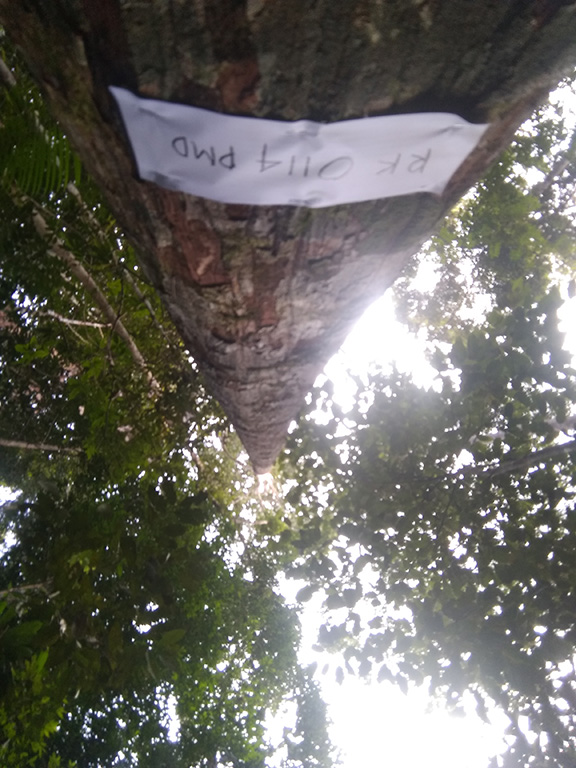 RK 0114 PMD